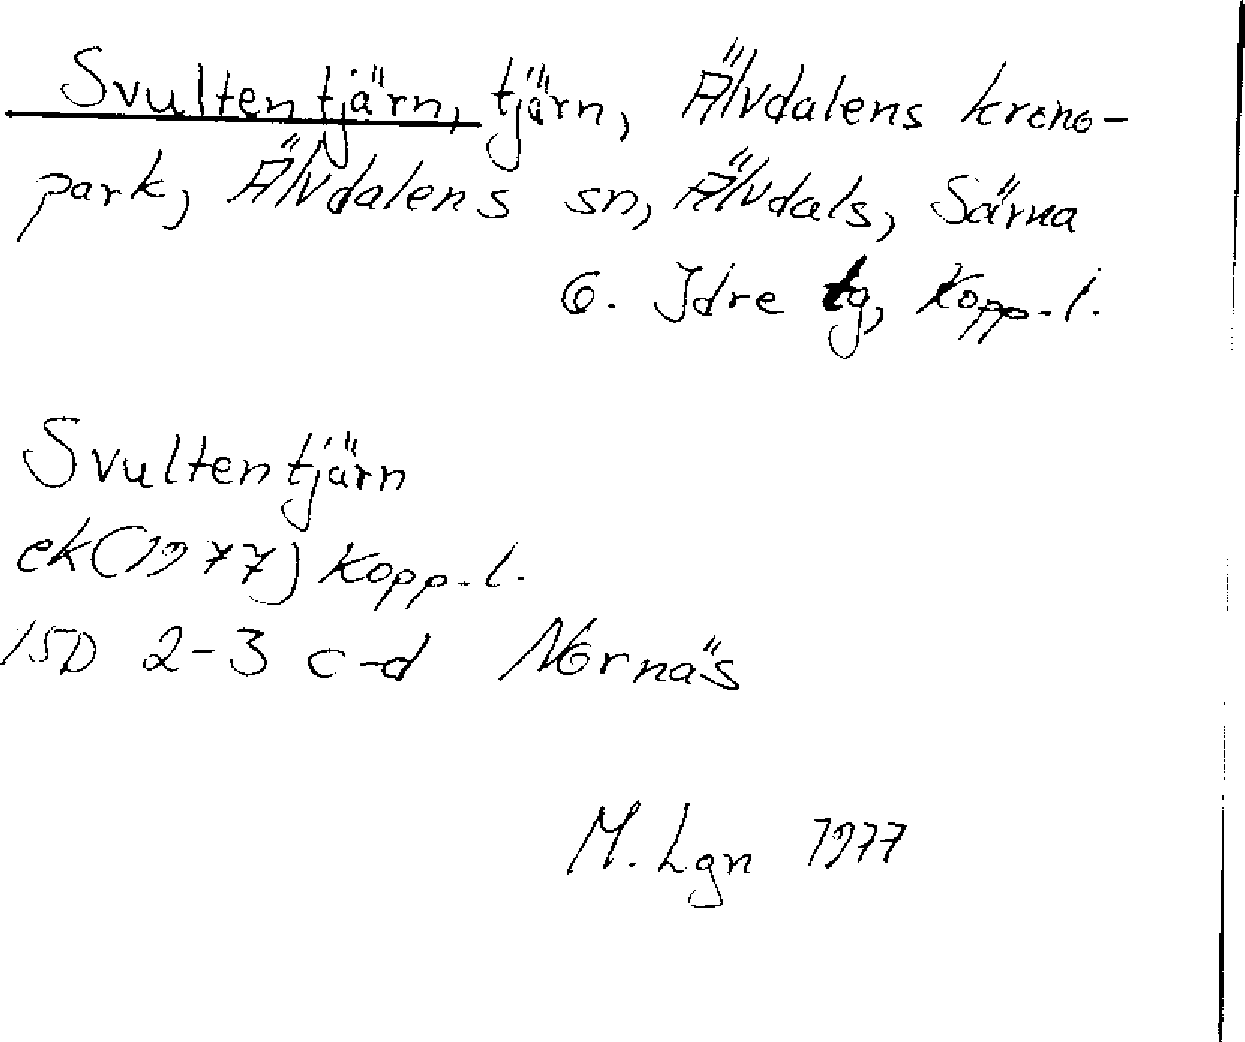 Svultentjärn, tjärn, Älvdalens krono-
park, Älvdalens sn, Älvdals, Särna
o. Idre tg, Kopp.l.
Svultentjärn
ek(1977) Kopp.l.
15D 2-3 c-d Nornäs
M. Lgn 1977